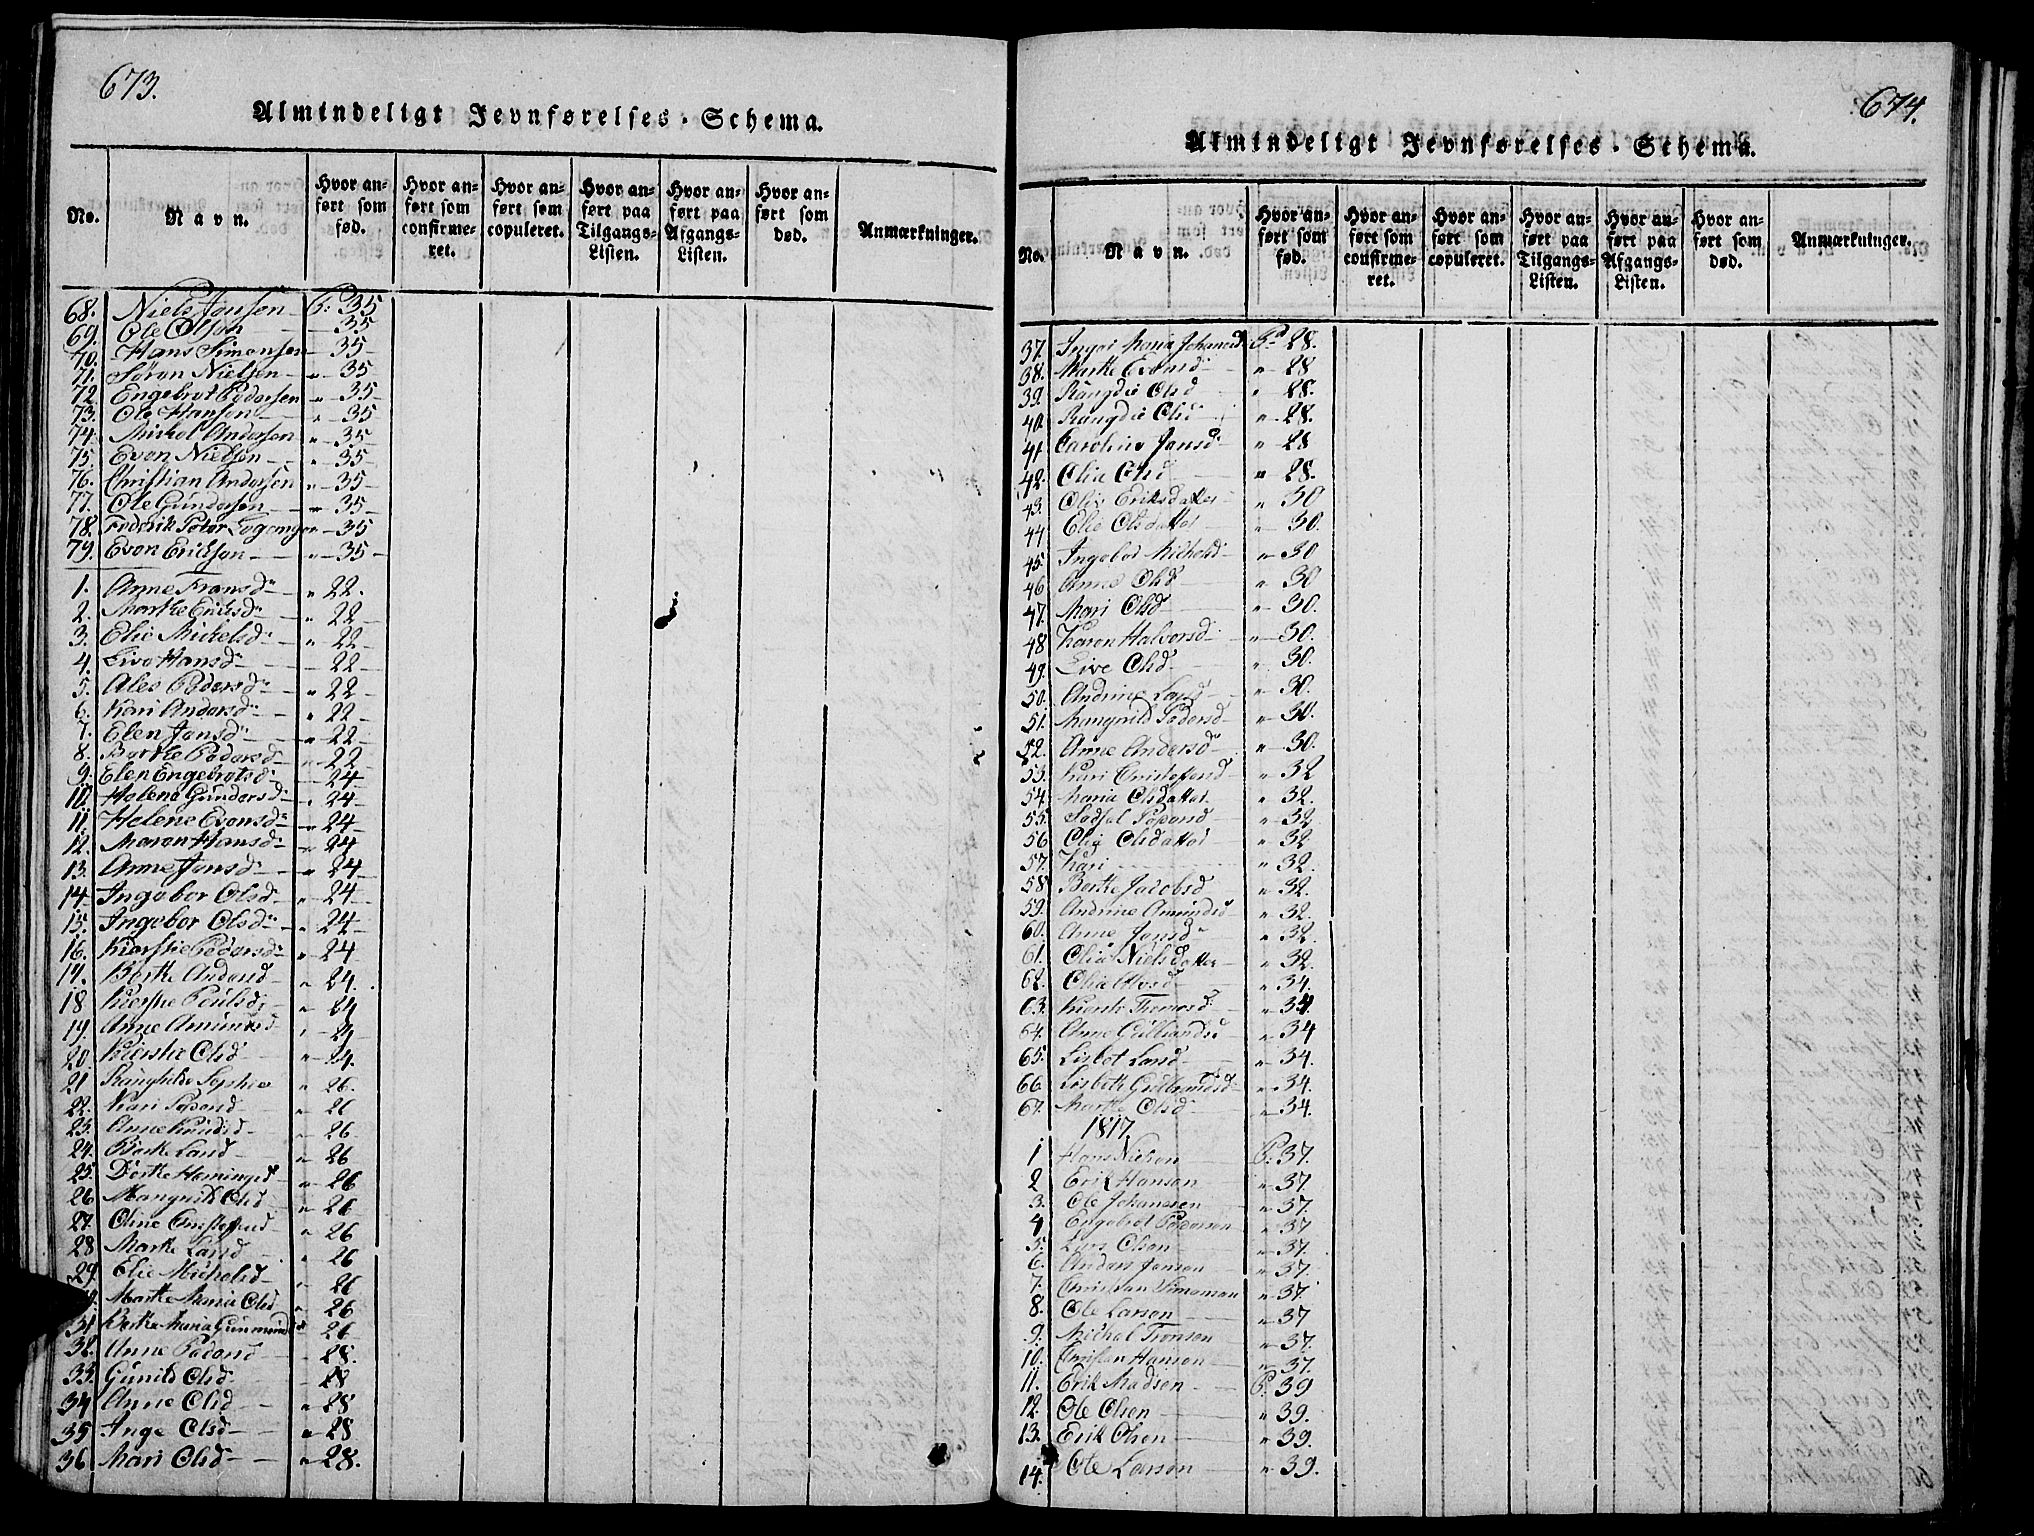 673.
Almindeligt Jevnførelses-Schema.
No.
Navn.
Hvor anført som fød.
Hvor anført som confirmeret.
Hvor anført som copuleret.
Hvor anført paa Tilgangs-Listen.
Hvor anført paa Afgangs-Listen.
Hvor anført som død.
Anmærkninger.
68. Niels Jensen P: 35
69. Ole Olsen 35
70. Hans Simensen 35
71. Søren Nielsen " 35
72. Engebret Pedersen " 35
73. Ole Hansen " 35
74. Mickel Andersen " 35
75. Even Nielsen " 35
76. Christian Andersen " 35
77. Ole Gundersen " 35
78. Frederik Peter 35
79. Even Ericksen " 35
1. Anne Fransd " 22.
2. Marthe Ericksd " 22
3. Elie Mickelsd " 22
4. Live Hansd 22
5. Ales Pedersd " 22
6. Kari Andersd " 22
7. Elen Jensd " 22
8. Berthe Pedersd " 22
9. Elen Engebretsd 24
10. Helene Gundersd " 24
11. Helene Evensd " 24
12. Maren Hansd " 24
13. Anne Jensd " 24
14. Ingebor Olsd " 24
15. Ingebor Olsd " 24
16. Kierstie Pedersd " 24
17. Berthe Andersd " 24.
18 Kierstie Poulsd " 24
19. Anne Amundsd " 24
20. Kierstie Olsd " 24.
21 Ranghilde Sophie " 26.
22. Kari " 26
23. Anne Knudsd " 26.
24. Berthe Larsd " 26
25. Dorthe Hemingsd " 26
26 Mangnild Olsd " 26
27. Oline Christophersd " 26
28 Marthe Larsd " 26
29. Elie Michelsd " 26
Marthe Maria Olsd " 26
31 Berthe Maria Gunmunds " 26
32. Anne Pedersd 28.
33. Gunild Olsd 28
34 Anne Olsd " 28
35 Inge Olsd " 28
36 Mari Olsd " 28.
674.
Almindeligt Jevnførelses-Schema.
No.
Navn.
Hvor anført som fød.
Hvor anført som confirmeret.
Hvor anført som copuleret.
Hvor anført paa Tilgangs-Listen.
Hvor anført paa Afgangs-Listen.
Hvor anført som død.
Anmærkninger.
37. Maria Johansd P. 28.
38. Marthe Evensd " 28
39. Rangdie Olsd " 28.
40. Rangdie Olsd " 28.
41 Caroline Jensd " 28
42. Olia Olsd " 28.
43. Olia Eriksdatter " 30
44 Elie Olsdatter " 30.
45. Ingebor Michelsd " 30
46 Anne Olsd " 30
47. Mari Olsd " 30.
48 Karen Halvorsd " 30.
49. Live Olsd " 30.
50. Andrine Larsd " 30.
51. Mangnild Pedersd " 30.
52. Anne Andersd " 30.
53. Kari Cristophersd " 32
54. Maria Olsdatter " 32.
55. " 32
56 Olia Olsdatter " 32
57. Kari " 32.
58 Berthe Jacobsd " 32.
59. Andrine Amundsd " 32.
60. Anne Jensd " 32
61. Olia Nielsdatter " 32.
62. Olia " 34.
63. Kierstie Thomasd " 34.
64. Anne " 34
65. Lisbet Larsd " 34.
66 Lisbeth " 34.
67. Marthe Olsd " 34.
1817.
1 Hans Nielsen P. 37.
2 Erik Hansen " 37.
3. Ole Johansen " 37.
4 Engebret Pedersen " 37
5. Lars Olsen " 37.
6. Anders Jensen " 37.
7. Christian Simensen " 37.
8. Ole Larsen " 37
9. Michel Tronsen " 37.
10. Christian Hansen " 37.
11. Erik Madsen P. 39
12. Ole Olsen " 39.
13. Erik Olsen " 39.
14. Ole Larsen " 39.